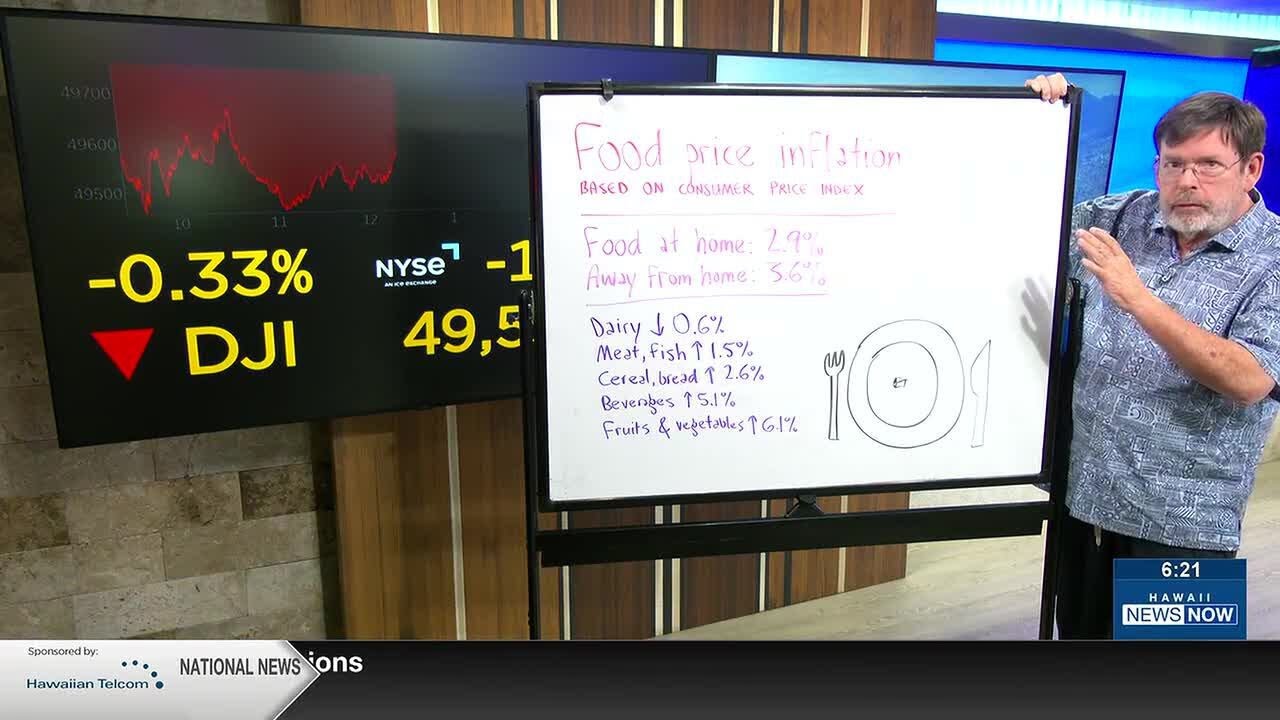 49700
49600
49500
10 11 12 1
-0.33%
DJI
NYSE
AN ICE EXCHANGE
-1
49,5
Food price inflation
BASED ON CONSUMER PRICE INDEX
Food at home: 2.9%
Away from home: 3.6%
Dairy ↓ 0.6%
Meat, fish ↑ 1.5%
Cereal, bread ↑ 2.6%
Beverages ↑ 5.1%
Fruits & vegetables ↑ 6.1%
6:21
HAWAII
NEWS NOW
Sponsored by:
Hawaiian Telcom
NATIONAL NEWS
ions